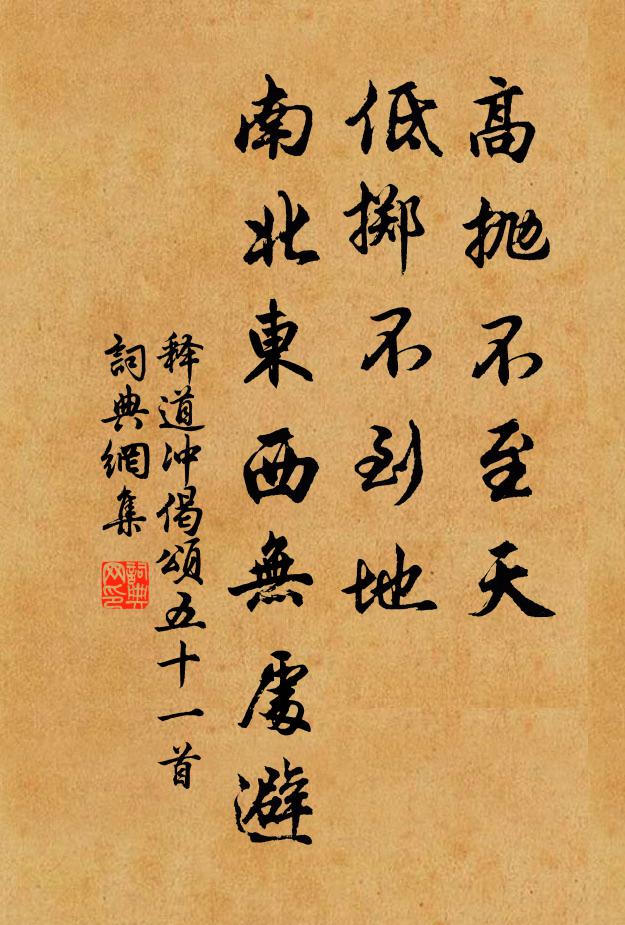 高抛不至天
低掷不到地
南北東西無處避
释道冲偈頌五十一首
詞典網集
詞典网印